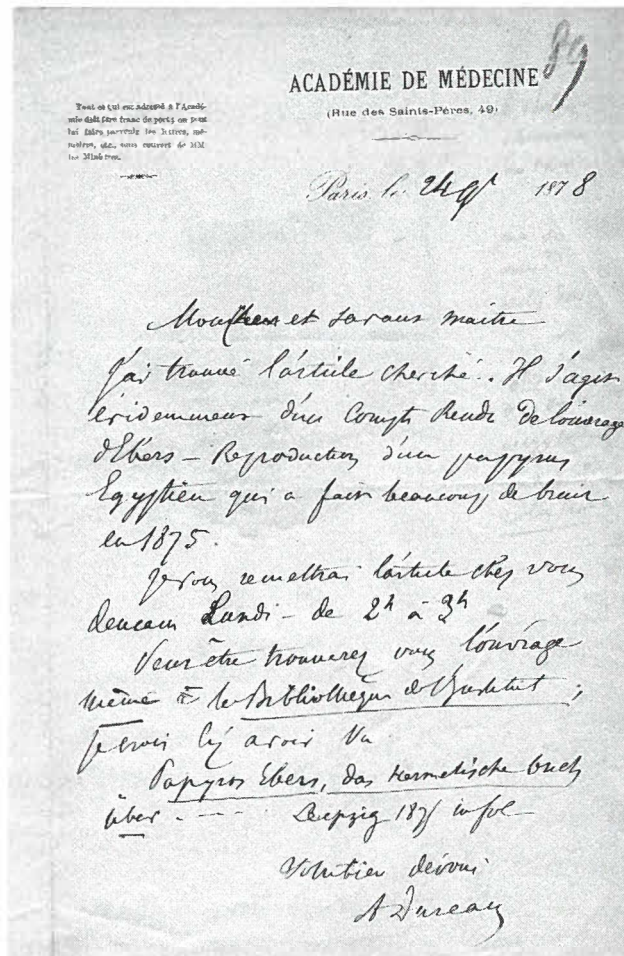 89
ACADÉMIE DE MÉDECINE
(Rue des Saints-Pères, 49)
Tout ce qui est adressé à l'Acadé-
mie doit être franc de port; on peut
lui faire parvenir les lettres, mé-
moires, etc., sous couvert de MM.
les Ministres.
Paris, le 24 1878
Mon cher et savant maitre
J'ai trouvé l'article cherché. Il s'agit
évidemment d'un Compte Rendu De l'ouvrage
d'Ebers – Reproduction d'un papyrus
Egyptien qui a fait beaucoup de bruit
en 1875.
Je vous remettrai l'article chez vous
demain Lundi – de 2h à 3h
Peut être trouverez vous l'ouvrage
même à la Bibliothèque de l'Institut ;
je crois l'y avoir vu
Papyros Ebers, das Hermetische buch
über . - - - Leipzig 1875 in fol –
dévoué
A Dureau